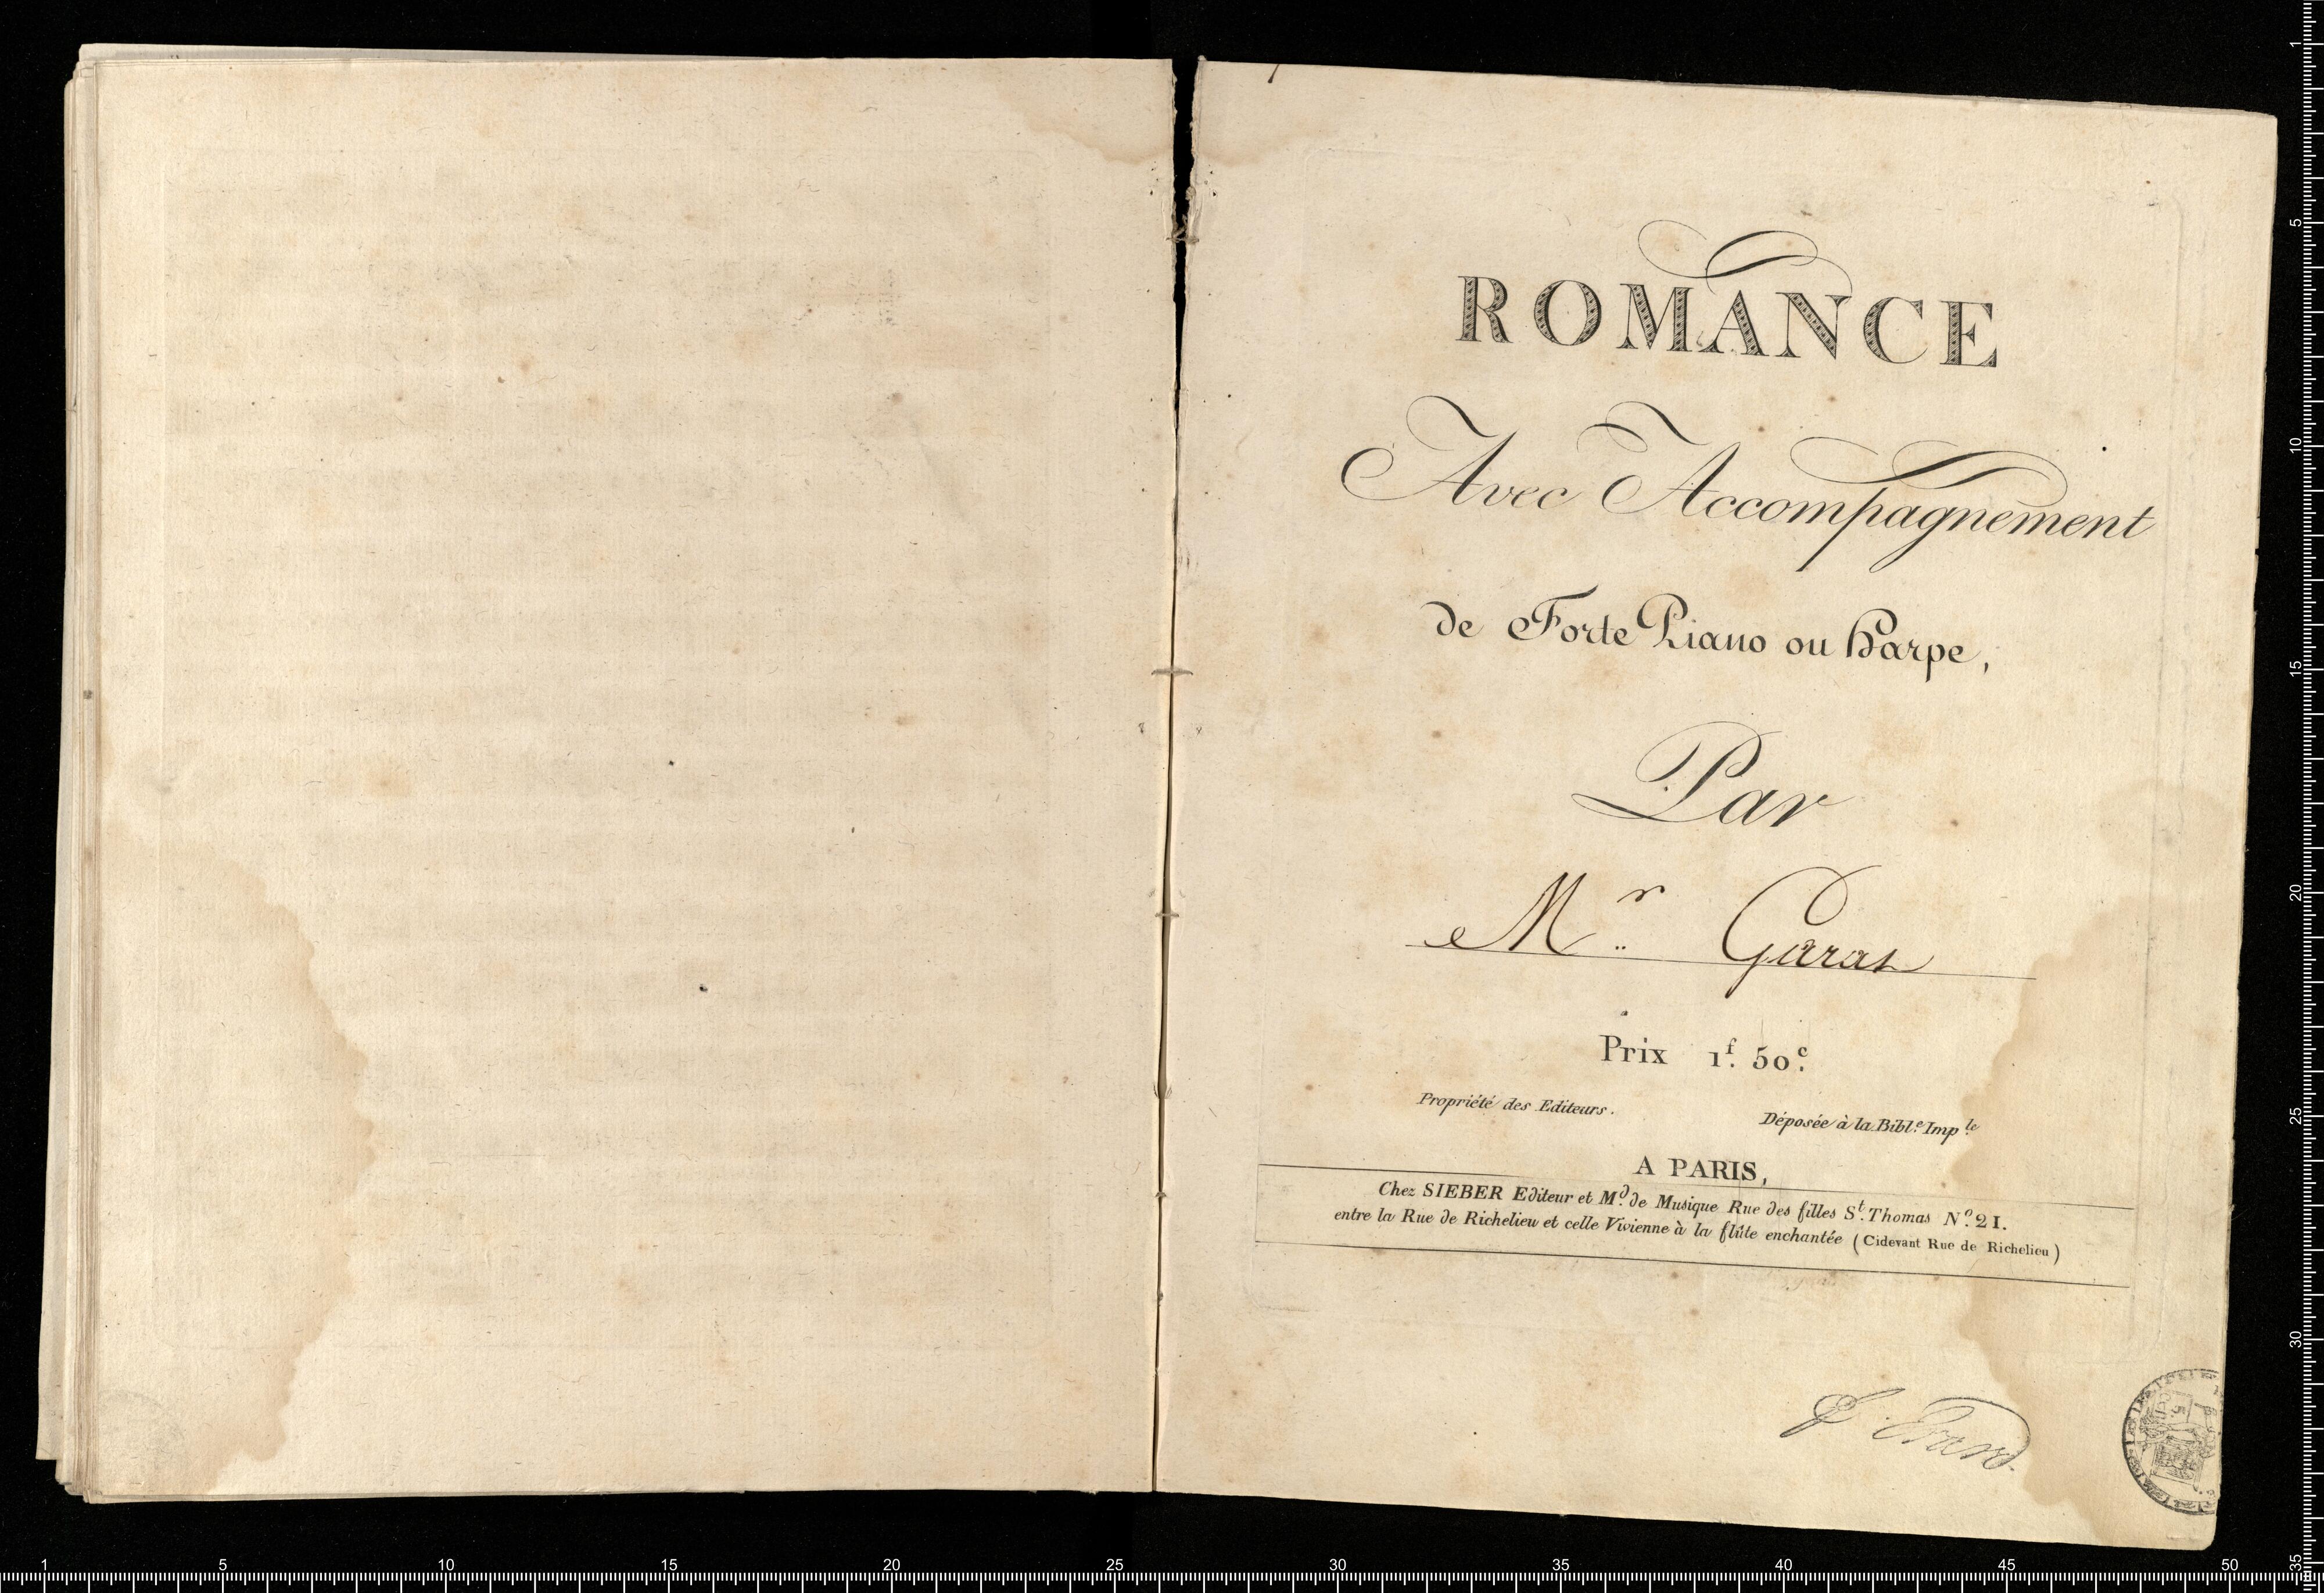 ROMANCE
Avec Accompagnement
de Forte Piano ou Harpe,
Par
Mr. Garat
Prix 1f. 50c.
Propriété des Editeurs. Déposée à la Bible. Imple.
A PARIS,
Chez SIEBER Editeur et Md. de Musique Rue des filles St. Thomas No. 21.
entre la Rue de Richelieu et celle Vivienne à la flûte enchantée (Cidevant Rue de Richelieu)
1 5 10 15 20 25 30 35 40 45 50
1 5 10 15 20 25 30 35